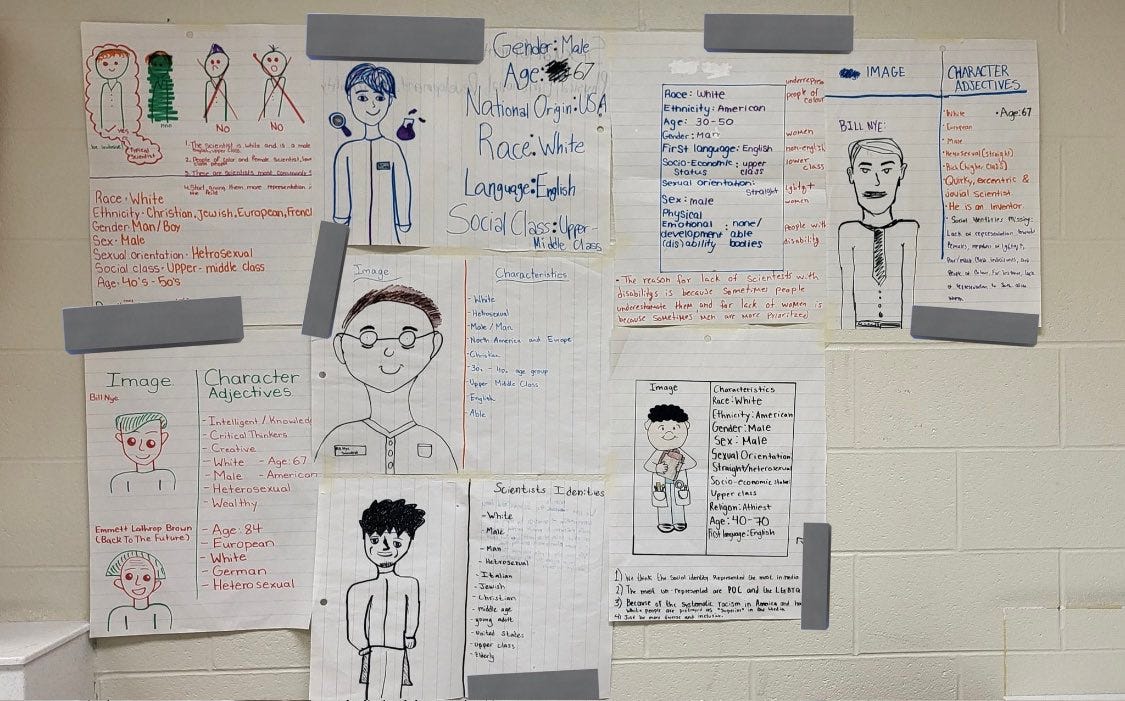 yes
NO
NO
typical scientist
1. The scientist is white and is a male
Race - White
Ethnicity - Christian, Jewish, European, French
Gender - Man/Boy
Sex - Male
Sexual orientation - Hetrosexual
Social class - Upper - middle class
Age - 40's - 50's
Gender: Male
Age: 67
National Origin: USA
Race: White
Language: English
Social Class: Upper-
Middle Class
Race: White
Ethnicity: American
Age: 30-50
Gender: Man
First language: English
Socio-Economic : upper
Status class
Sexual orientation:
Straight
Sex: male
Physical
Emotional : none/
development able
(dis)ability bodies
underrepres
people of
colour
women
non-english
lower
class
lgbtq+
women
people with
disability
- The reason for lack of scientests with
disabiligs is because sometimes people
underestemate them and for lack of women is
because sometimes men are more prioritized
IMAGE
BILL NYE:
CHARACTER
ADJECTIVES
- White
• Age: 67
- European
- Male
- Hetrosexual (straight)
- Rich (higher class)
- Quirky, excentric &
jovial scientist
- He is an inventor.
- Social Identities Missing:
Lack of representation towards
Image
Characteristics
- White
- Hetrosexual
- Male / Man
- North America and Europe
- Christian
- 30 - 40 age group
- Upper Middle Class
- English
- Able
Image
Bill Nye
Character
Adjectives
- Intelligent / Knowled
- Critical Thinkers
- Creative
- White - Age: 67
- Male - American
- Heterosexual
- Wealthy
Emmett Lathrop Brown
(Back To The Future)
- Age: 84
- European
- White
- German
- Heterosexual
Scientists Idenities
- White
- Male
- Man
- Hetrosexual
- Italian
- Jewish
- Christian
- middle age
- young adult
- united States
- upper class
- Elderly
Image
Characteristics
Race: White
Ethnicity: American
Gender: Male
Sex: Male
Sexual Orientation
Straight/heterosexual
Socio-economic
Upper class
Religon: Athiest
Age: 40-70
First language: English
1) We think the social identity represented the most in media
2) The most un-represented are POC and the LGBTQ
3) Because of the systematic racism in America and
White people are portrayed as "superior" in our media
4) Just be more diverse and inclusive.